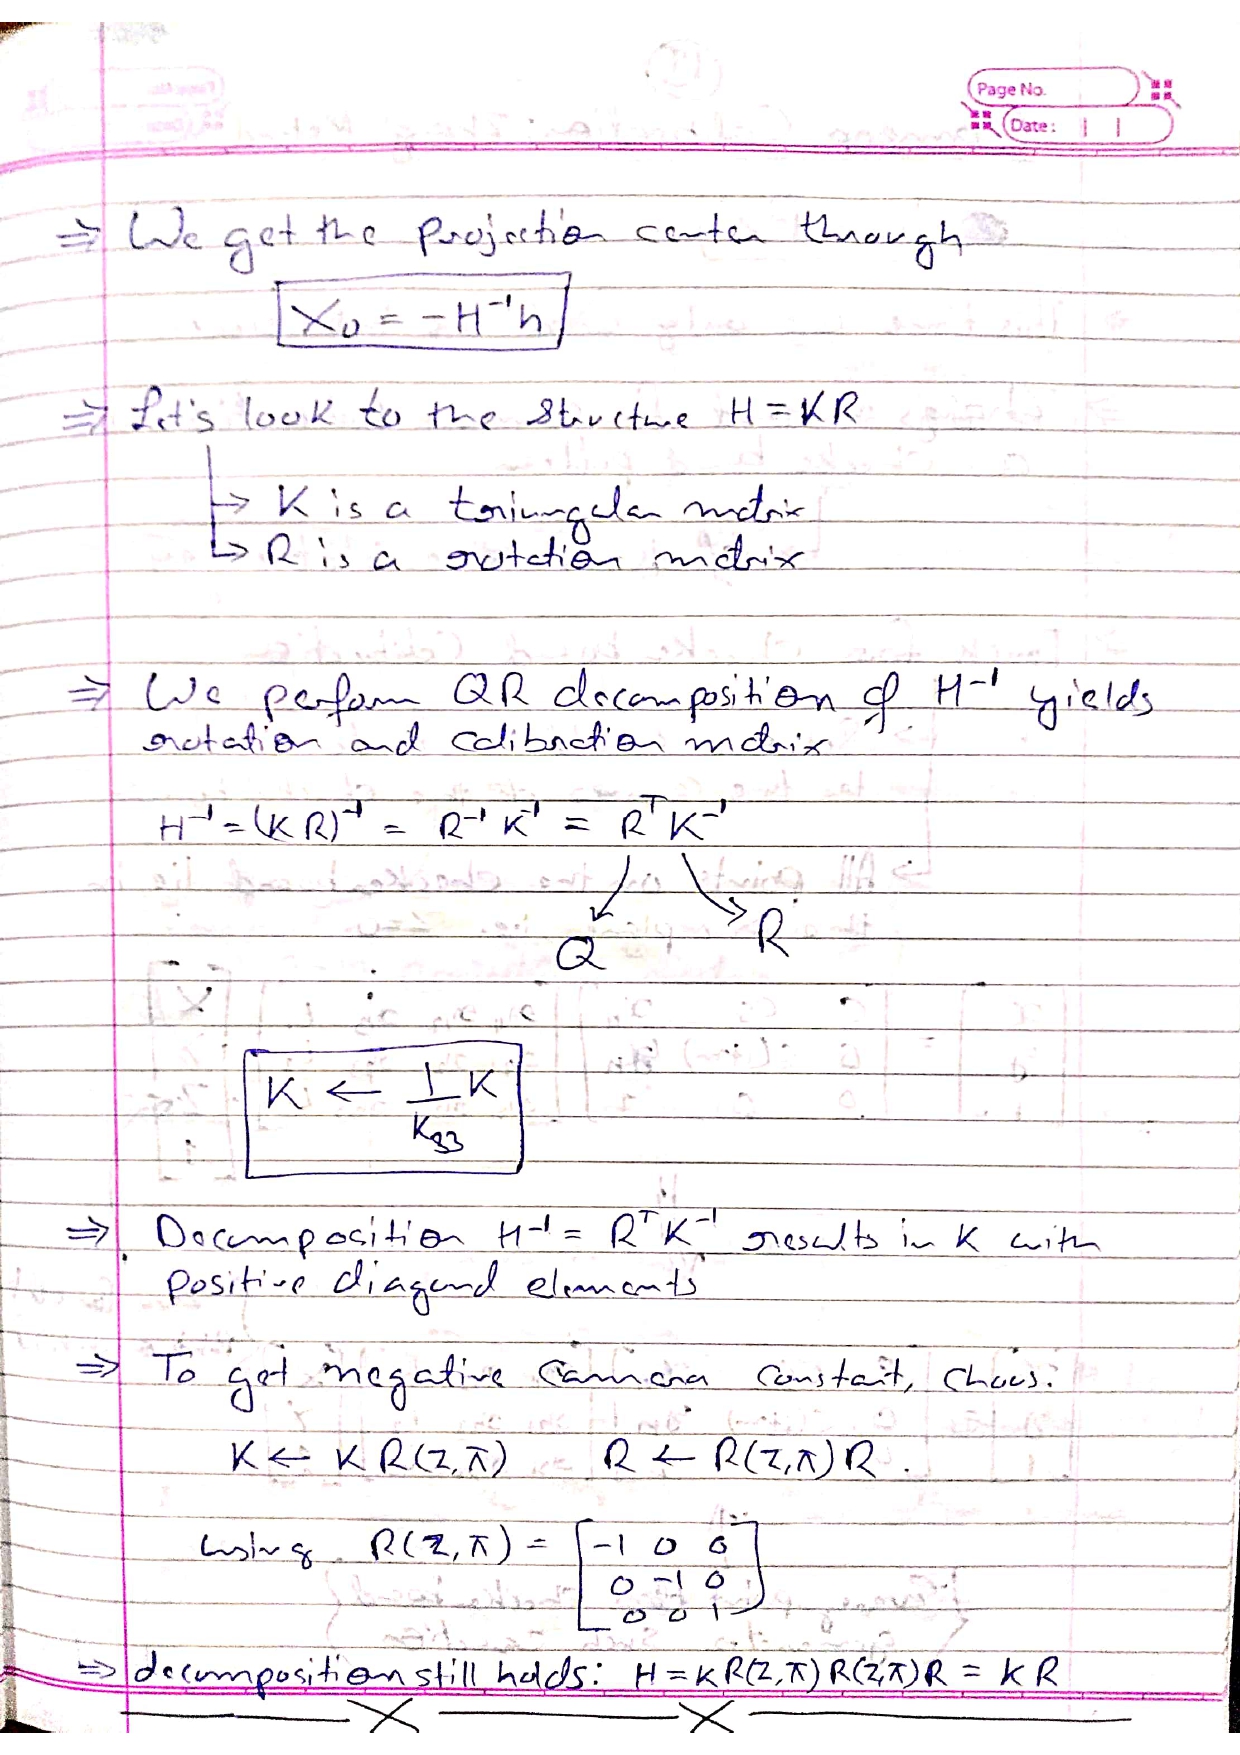 Page No.
Date: | |
⇒ We get the Projection center through
X₀ = -H⁻¹h
⇒ Let's look to the structure H = KR
→ K is a triangular matrix
→ R is a rotation matrix
⇒ We perform QR decomposition of H⁻¹ yields
rotation and calibration matrix
H⁻¹ = (KR)⁻¹ = R⁻¹ K⁻¹ = Rᵀ K⁻¹
Q R
K ← 1/K₃₃ K
⇒ Decomposition H⁻¹ = Rᵀ K⁻¹ results in K with
positive diagonal elements
⇒ To get negative Camera Constant, Choos:
K ← K R(z,π) R ← R(z,π) R .
using R(z,π) = [-1 0 0
0 -1 0
0 0 1]
⇒ decomposition still holds: H = K R(z,π) R(z,π) R = K R